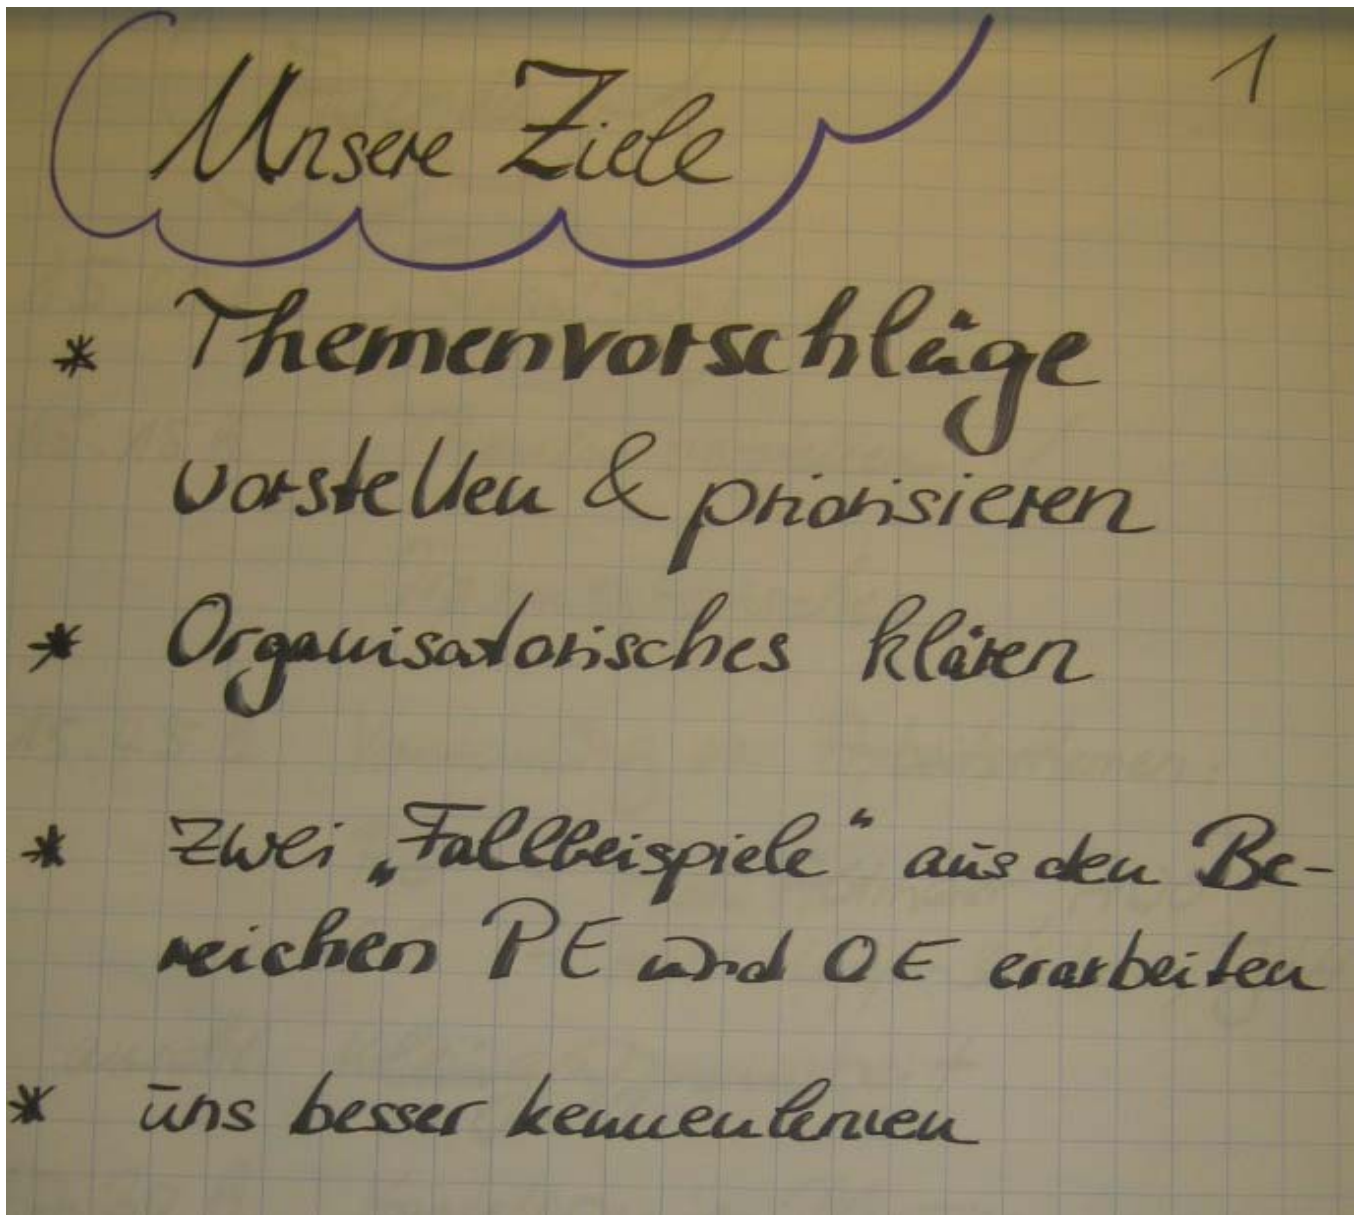 Unsere Ziele
1
* Themenvorschläge
vorstellen & priorisieren
* Organisatorisches klären
* zwei „Fallbeispiele“ aus den Be-
reichen PE und OE erarbeiten
* uns besser kennenlernen